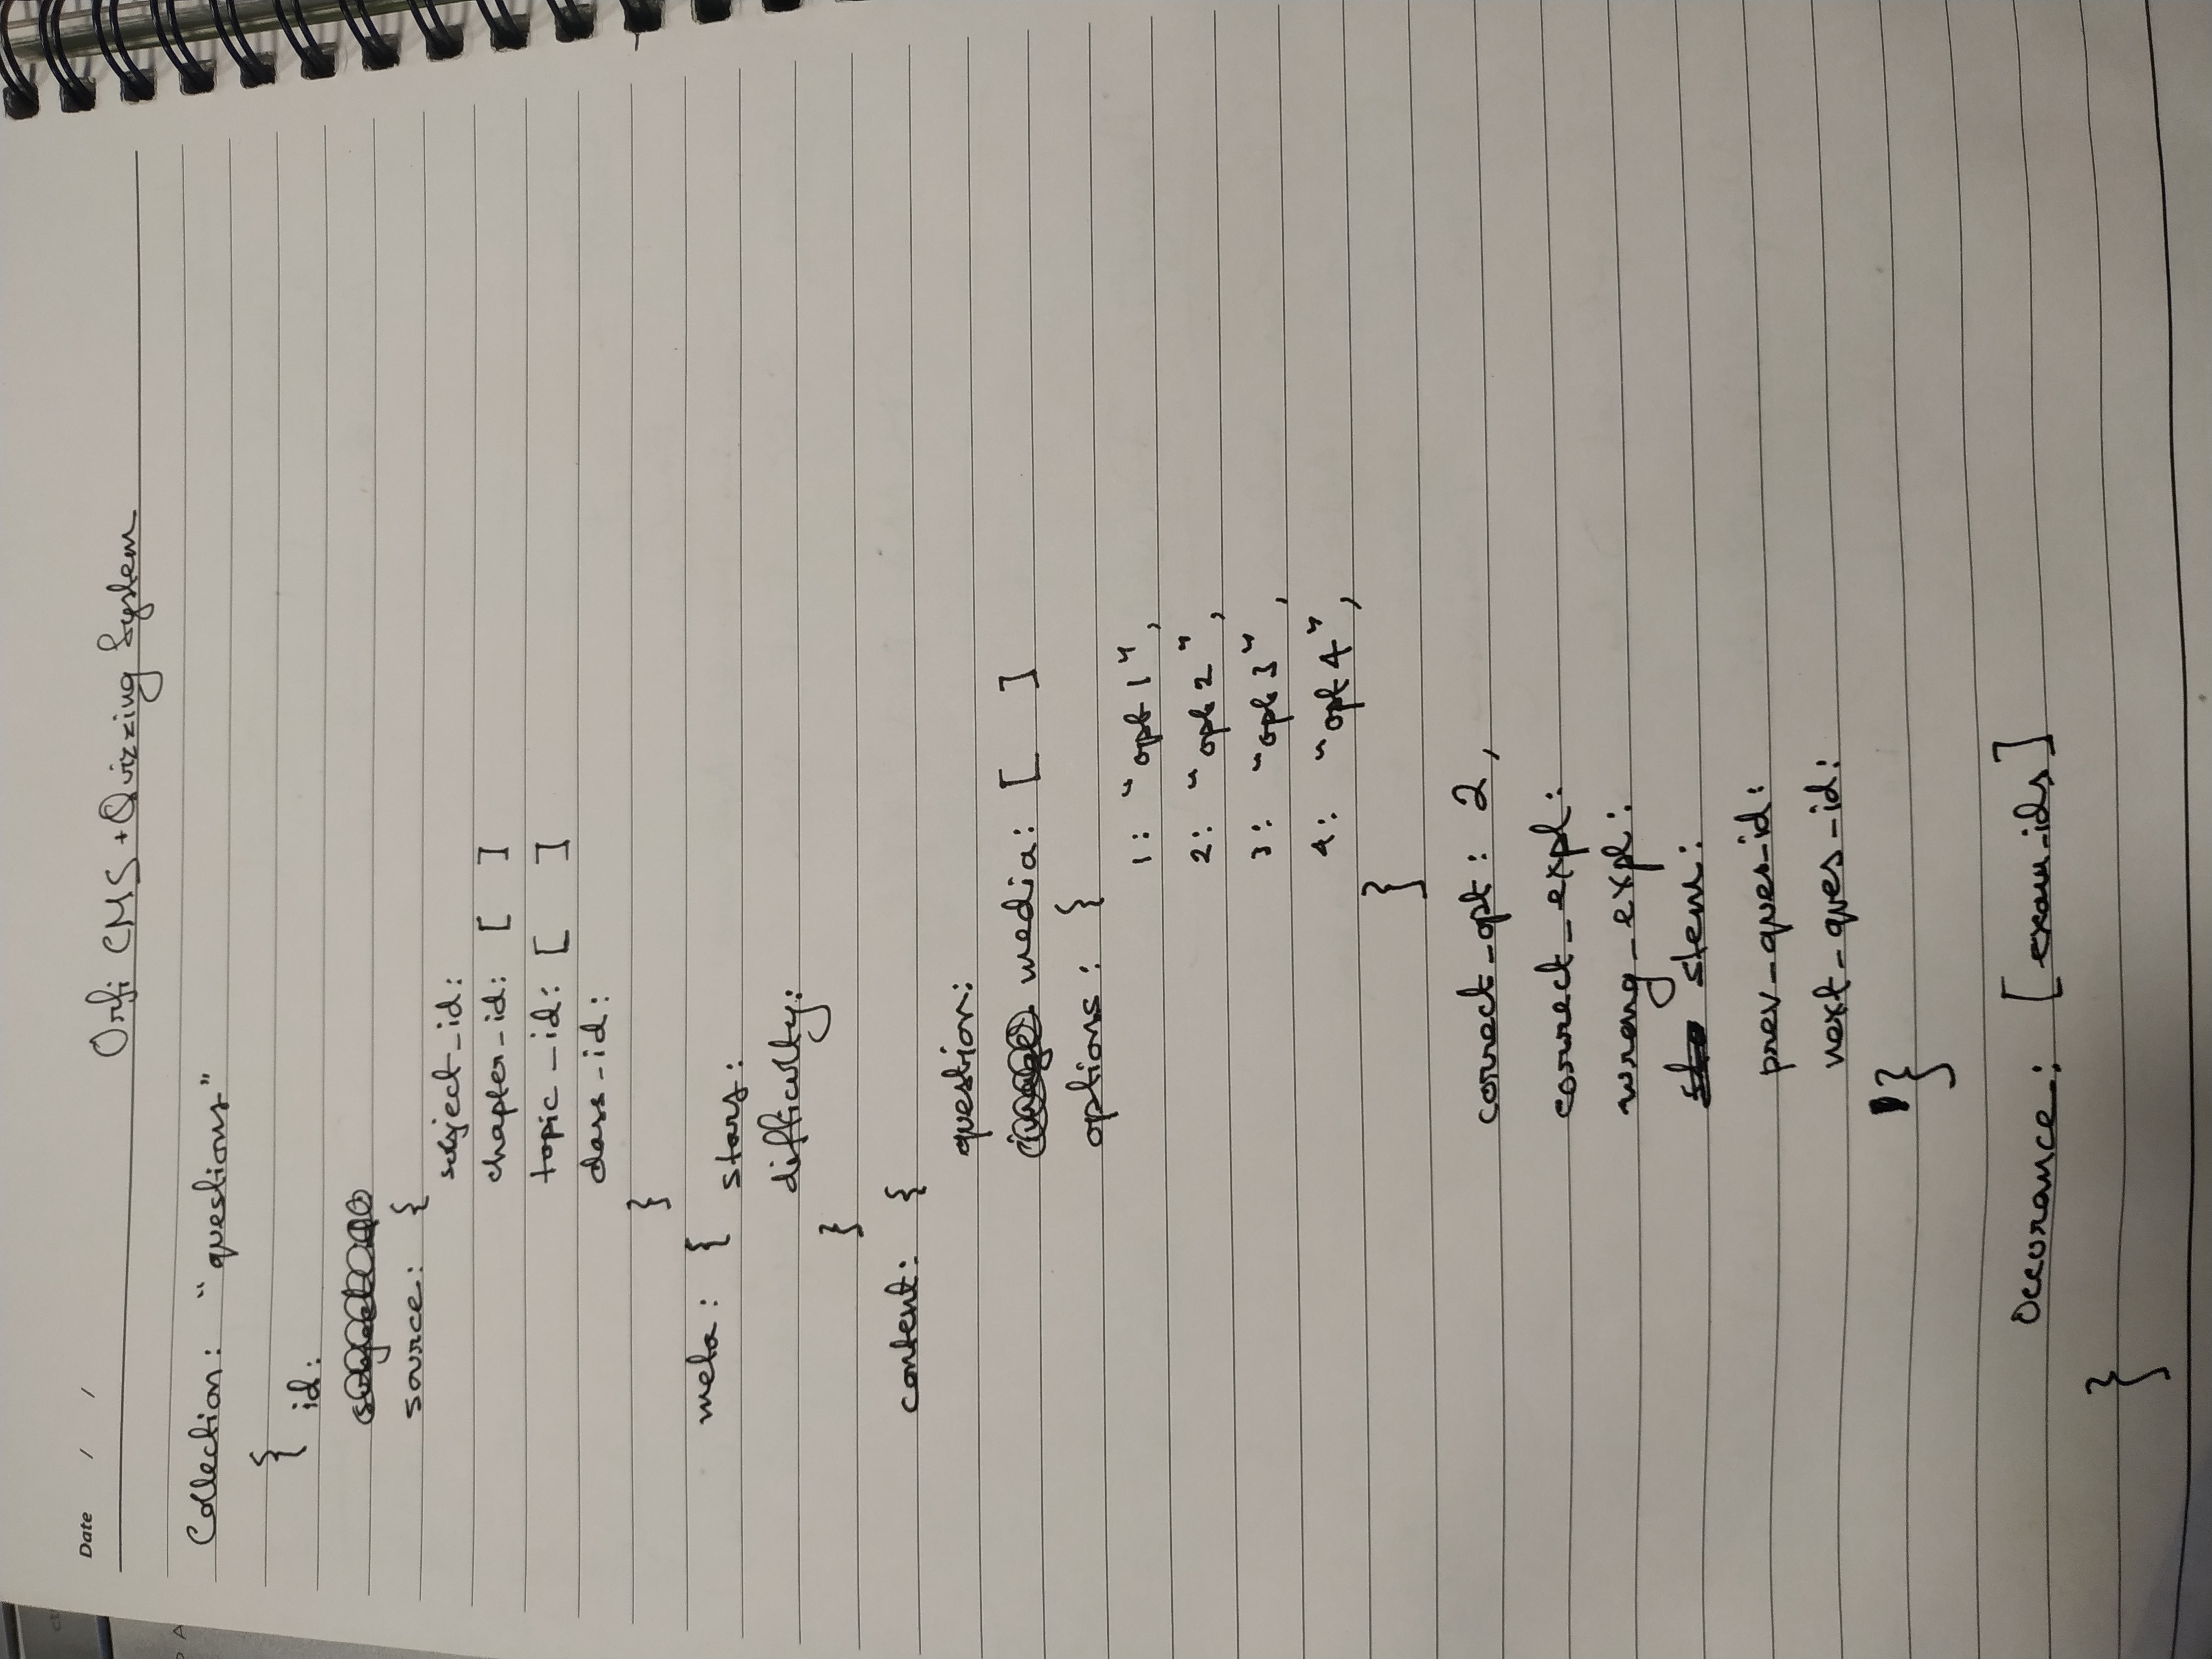 Date / /
Orfi CMS + Quizzing System
Collection: "questions"
{
id:
source: {
subject_id:
chapter_id: [ ]
topic_id: [ ]
class_id:
}
meta: {
stars:
difficulty:
}
content: {
question:
media: [ ]
options: {
1: "opt 1",
2: "opt 2",
3: "opt 3",
4: "opt 4",
}
correct_opt: 2,
correct_expl:
wrong_expl:
stem:
prev_ques_id:
next_ques_id:
}
Occurance: [exam_ids]
}